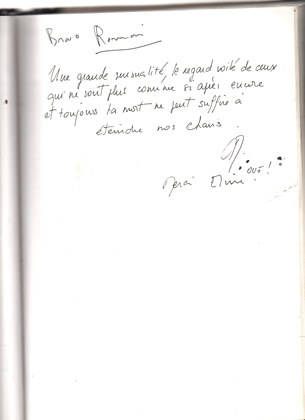 Bravo
Une grande sensualité, le regard voilé de ceux
qui ne sont plus comme si après encore
et toujours la mort ne peut suffire à
éteindre nos chairs.
OUF!
Merci